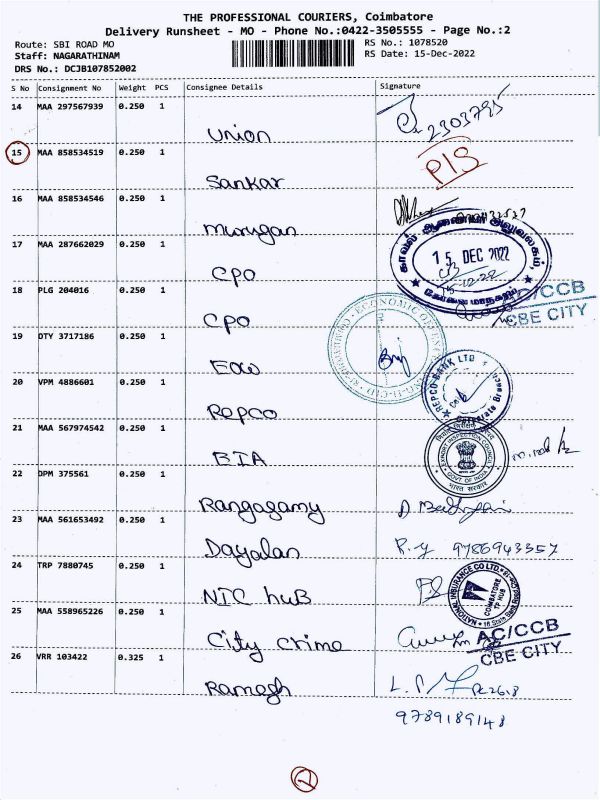 THE PROFESSIONAL COURIERS, Coimbatore
Delivery Runsheet - MO - Phone No.:0422-3505555 - Page No.:2
Route: SBI ROAD MO
RS No.: 1078520
Staff: NAGARATHINAM
RS Date: 15-Dec-2022
DRS No.: DCJB107852002
S No Consignment No Weight PCS Consignee Details Signature
14 MAA 297567939 0.250 1
Union 2303795
15 MAA 858534519 0.250 1
Sankar
16 MAA 858534546 0.250 1
Murugan
17 MAA 287662029 0.250 1
CPO
காவல் ஆணையர் அலுவலகம்,
15 DEC 2022
கோவை மாநகரம்
15-12-22
18 PLG 204016 0.250 1
CPO
AC/CCB
CBE CITY
19 DTY 3717186 0.250 1
EOW
ECONOMIC
20 VPM 4886601 0.250 1
Repco
REPCO BANK LTD
21 MAA 567974542 0.250 1
EIA
EXPORT INSPECTION COUNCIL
GOVT. OF INDIA
भारत सरकार
22 DPM 375561 0.250 1
Rangasamy
23 MAA 561653492 0.250 1
Dayalan 9786943357
24 TRP 7880745 0.250 1
NIC hub
NATIONAL INSURANCE CO LTD.
COIMBATORE
TP HUB
25 MAA 558965226 0.250 1
City crime
AC/CCB
CBE CITY
26 VRR 103422 0.325 1
Ramesh
9789189148
2